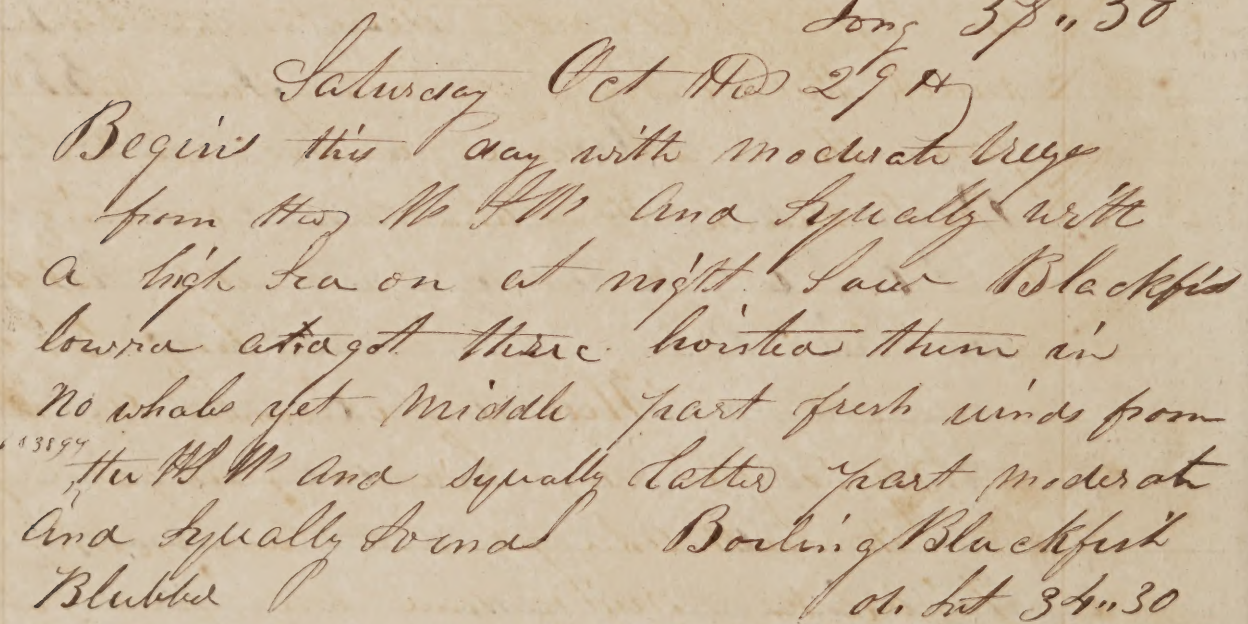 Long 37 " 30
Saturday Oct the 29 th
Begins this day with moderate breze
from the W S W And Squally with
a high Sea on at night Saw Blackfis
lowrd got three hoisted them in
No whales yet Middle part fresh winds from
the W And squally Latter part moderate
And Squally Sound Boiling Blackfish
Blubber ob. Lat 34 " 30